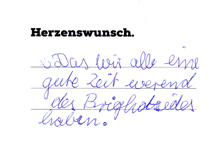 Herzenswunsch.
Das wir alle eine
gute Zeit werend
des
haben.